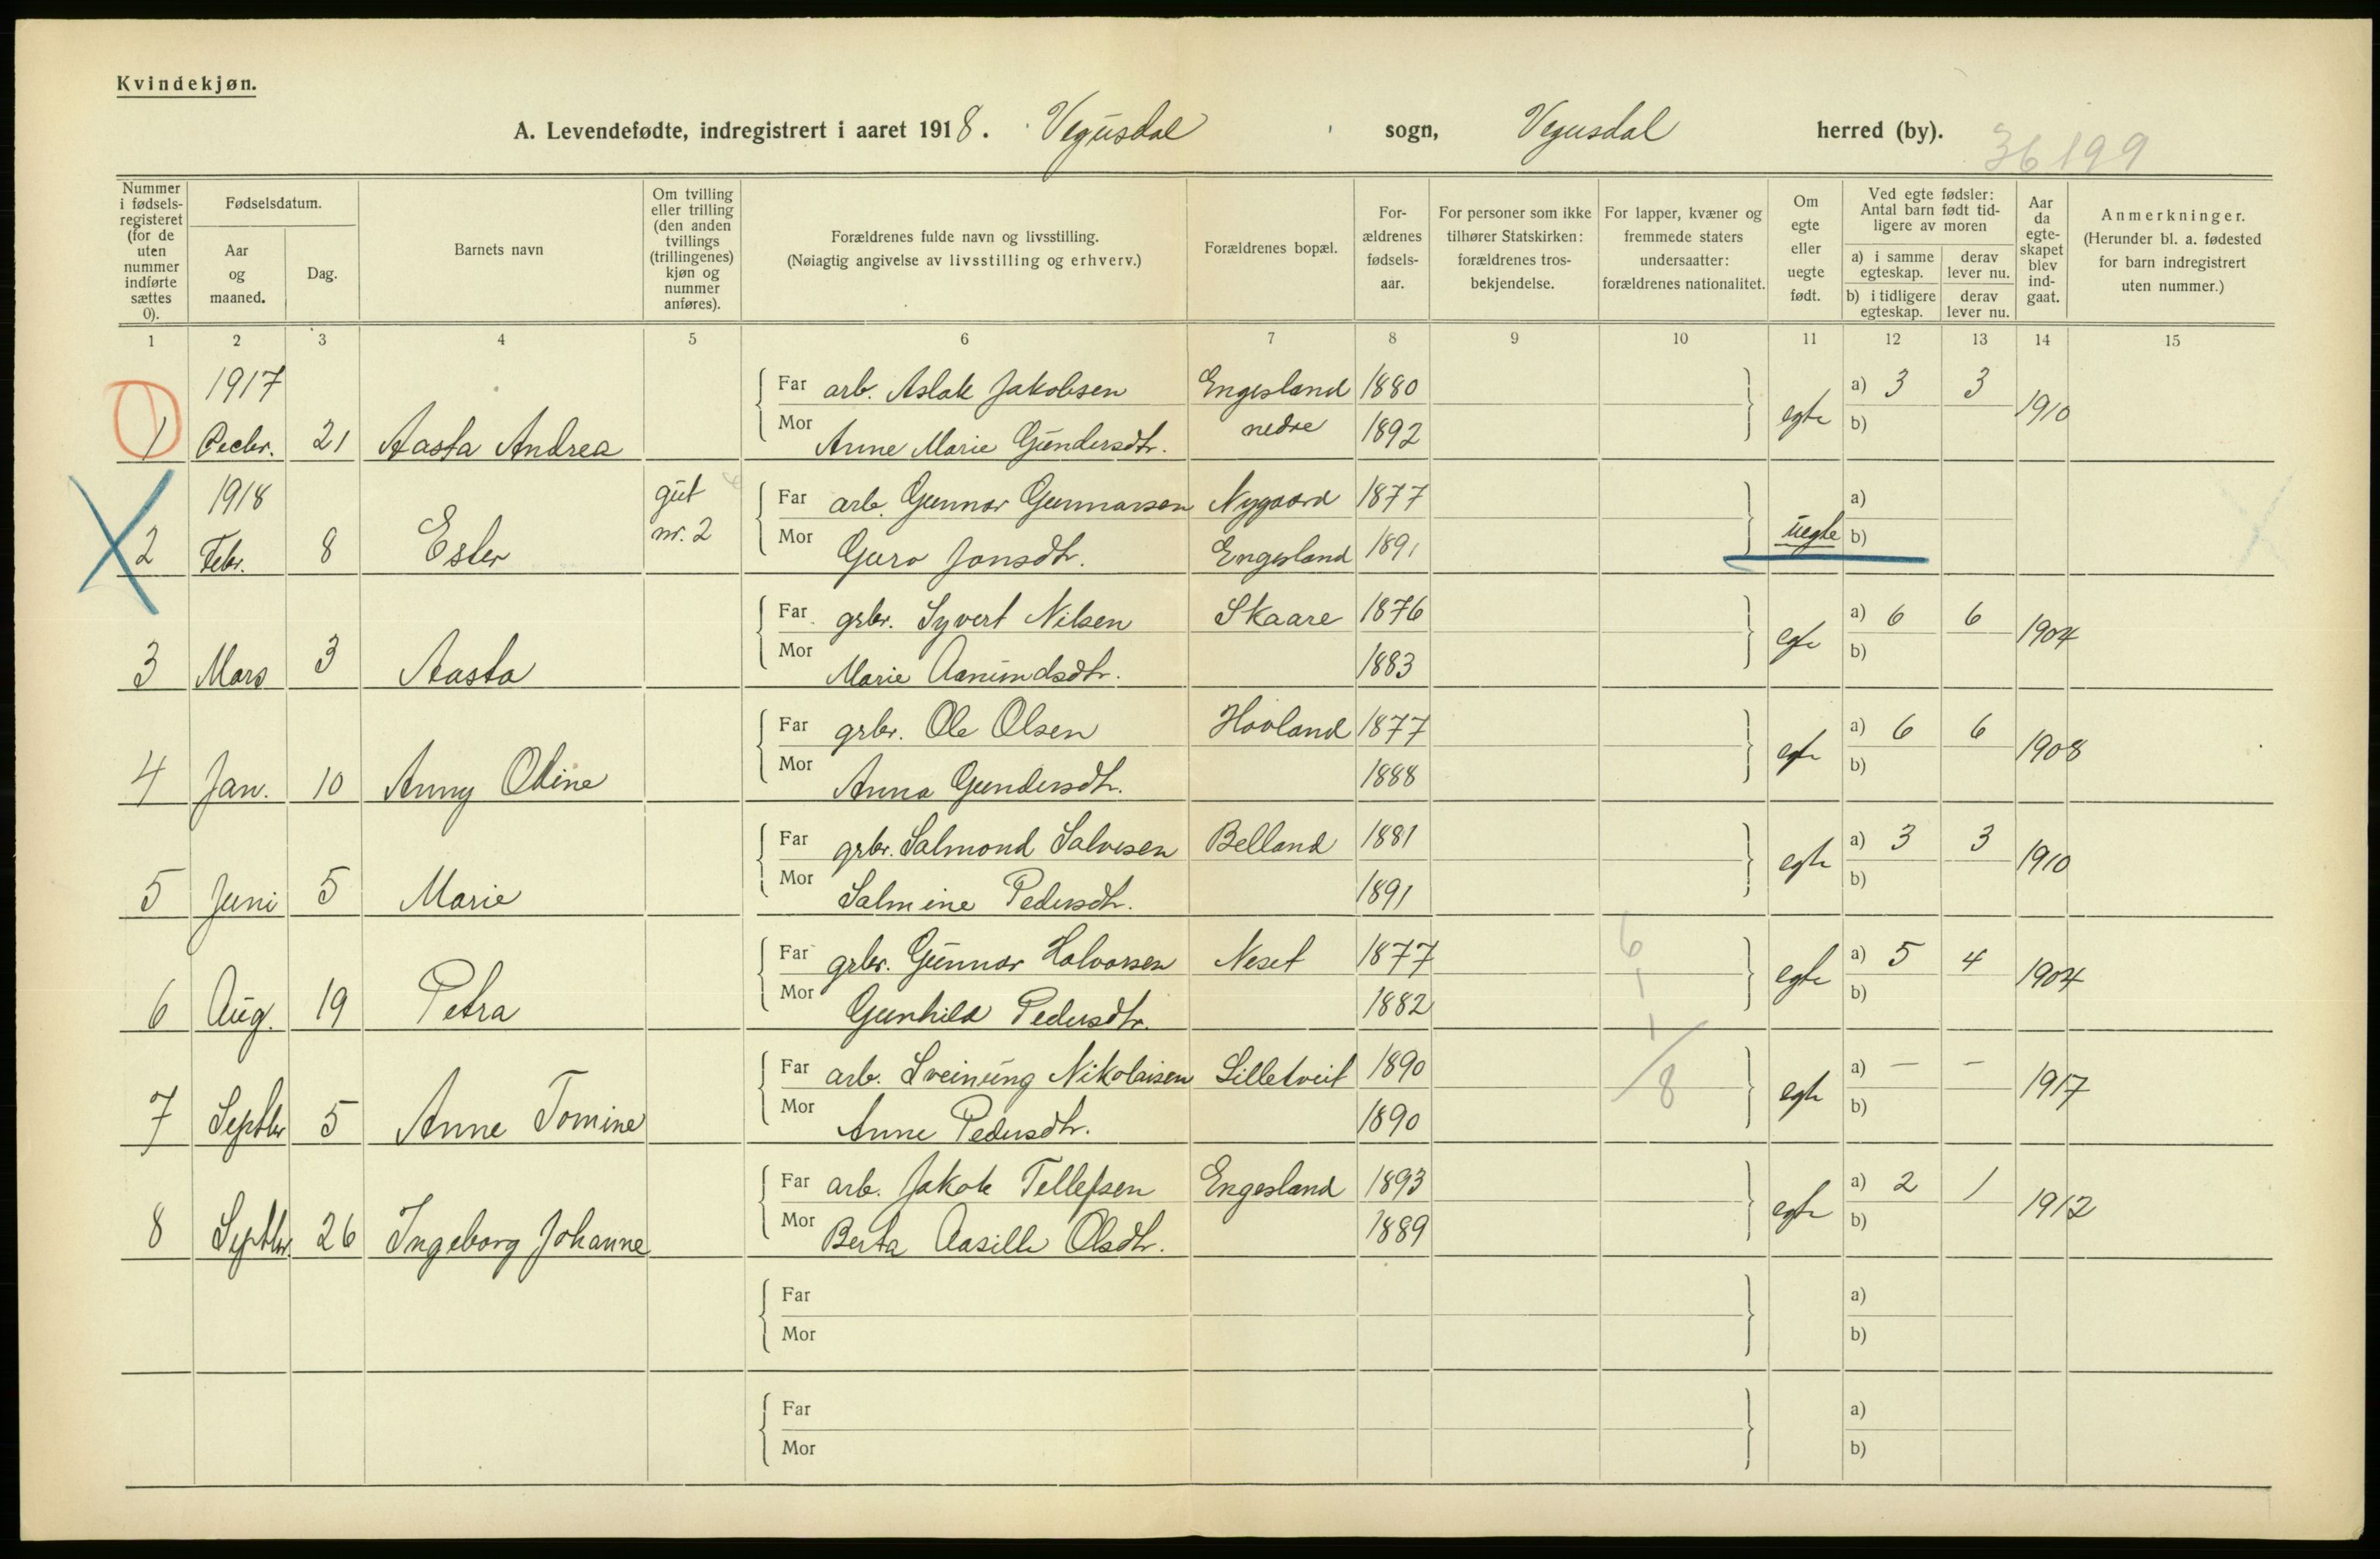 Kvindekjøn.
A. Levendefødte, indregistrert i aaret 1918. Vegusdal sogn, Vegusdal herred (by).
36199
Nummer i fødselsregisteret (for de uten nummer indførte sættes 0).
Fødselsdatum.
Aar og maaned.
Dag.
Barnets navn
Om tvilling eller trilling (den anden tvillings (trillingenes) kjøn og nummer anføres).
Forældrenes fulde navn og livsstilling. (Nøiagtig angivelse av livsstilling og erhverv.)
Forældrenes bopæl.
For-ældrenes fødsels-aar.
For personer som ikke tilhører Statskirken: forældrenes tros-bekjendelse.
For lapper, kvæner og fremmede staters undersaatter: forældrenes nationalitet.
Om egte eller uegte født.
Ved egte fødsler: Antal barn født tid-ligere av moren
a) i samme egteskap. derav lever nu.
b) i tidligere egteskap. derav lever nu.
Aar da egte-skapet blev ind-gaat.
Anmerkninger. (Herunder bl. a. fødested for barn indregistrert uten nummer.)
1 2 3 4 5 6 7 8 9 10 11 12 13 14 15
1917
Far arb. Aslak Jakobsen Engesland 1880 a) 3 3
1 Decbr. 21 Aasta Andrea Mor Anne Marie Gundersdtr. nedre 1892 egte b) 1910
1918 gut
Far arb. Gunnar Gunnarsen Nygaard 1877 a)
2 Febr. 8 Ester nr. 2 Mor Guro Jonsdtr. Engesland 1891 uegte b)
Far grbr. Syvert Nilsen Skaare 1876 a) 6 6
3 Mars 3 Aasta Mor Marie Aanundsdtr. 1883 egte b) 1904
Far grbr. Ole Olsen Hovland 1877 a) 6 6
4 Jan. 10 Anny Otine Mor Anna Gundersdtr. 1888 egte b) 1908
Far grbr. Salmond Salvesen Belland 1881 a) 3 3
5 Juni 5 Marie Mor Salmine Pedersdtr. 1891 egte b) 1910
Far grbr. Gunnar Halvorsen Neset 1877 6 a) 5 4
6 Aug. 19 Petra Mor Gunhild Pedersdtr. 1882 1 1 egte b) 1904
Far arb. Sveinung Nikolaisen Lilletveit 1890 8 a) — —
7 Septbr 5 Anne Tomine Mor Anne Pedersdtr. 1890 egte b) 1917
Far arb. Jakob Tellefsen Engesland 1893 a) 2 1
8 Septbr. 26 Ingeborg Johanne Mor Berta Aasille Olsdtr. 1889 egte b) 1912
Far a)
Mor b)
Far a)
Mor b)